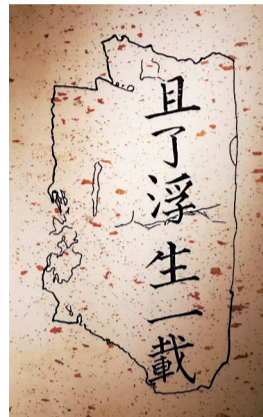 且了浮生一載